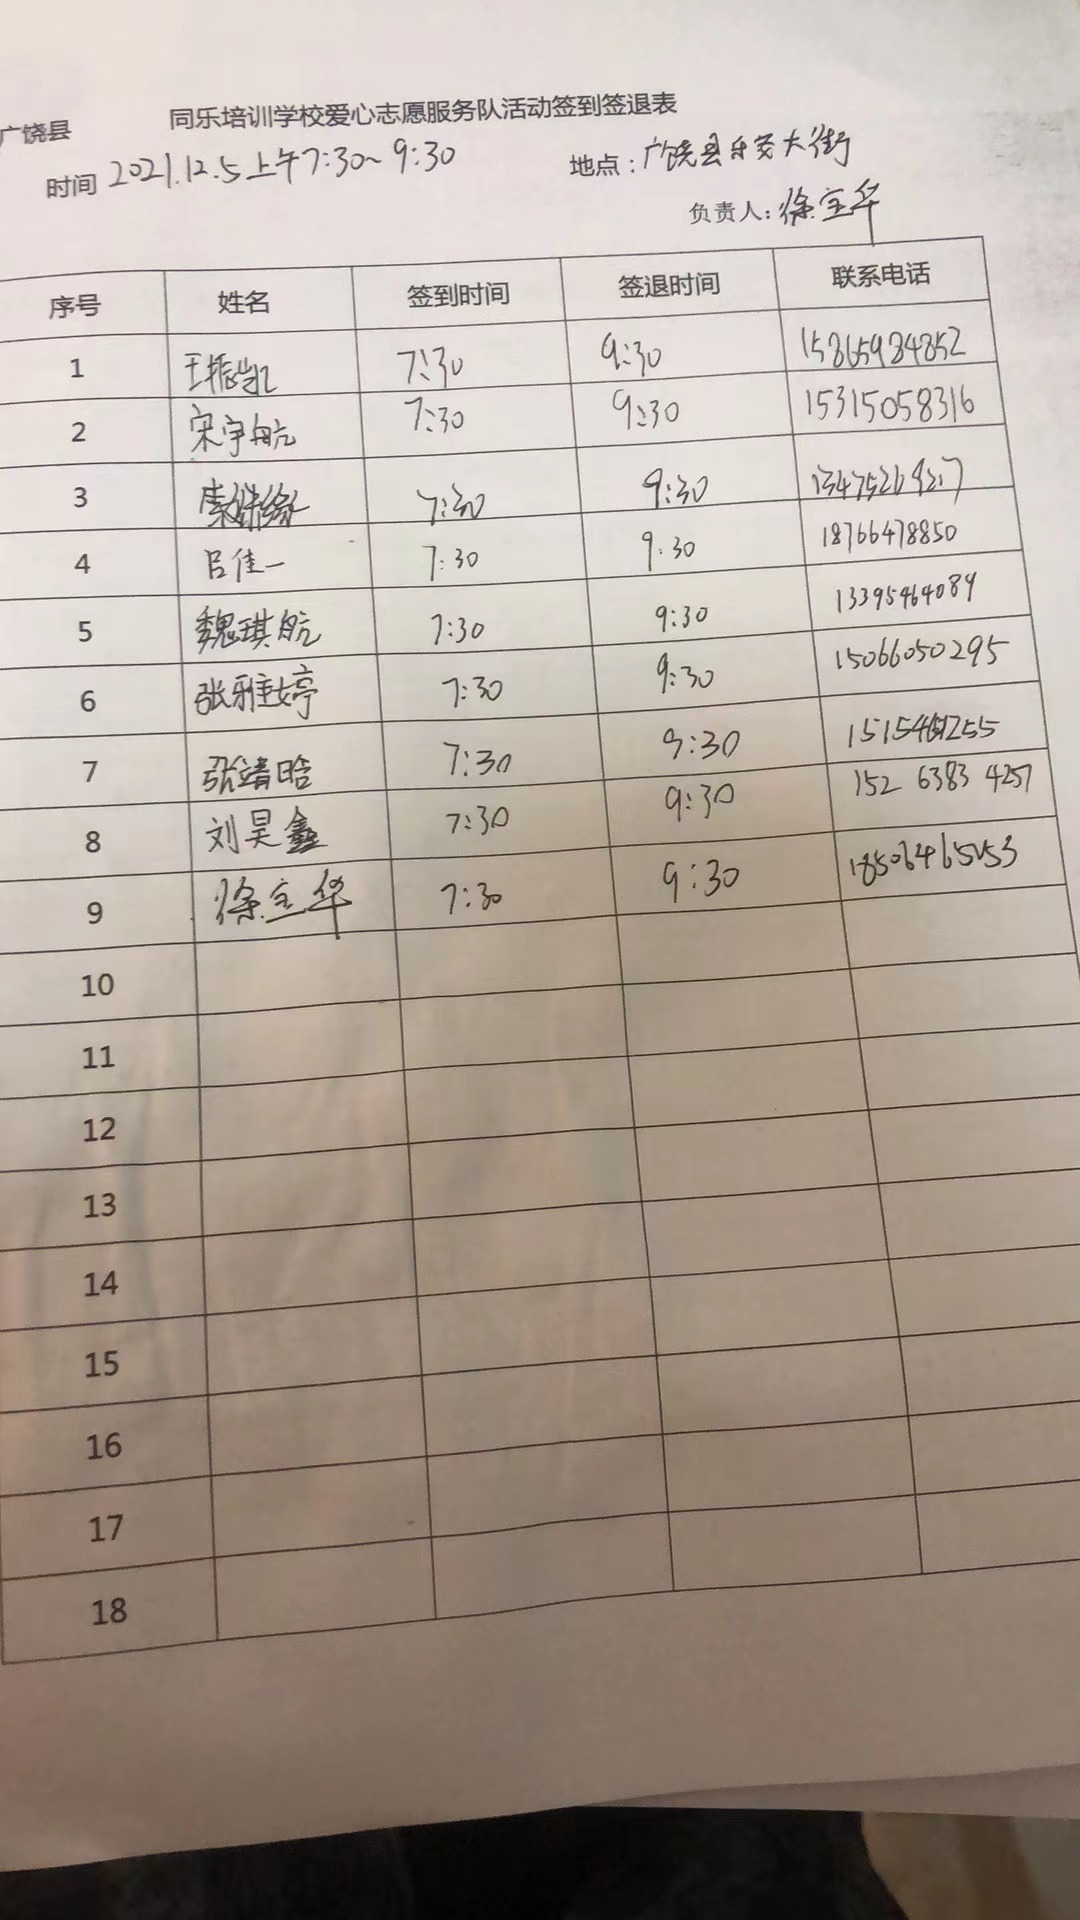 广饶县 同乐培训学校爱心志愿服务队活动签到签退表
时间 2021.12.5上午7:30~9:30 地点：广饶县乐安大街
负责人：徐宝华
序号 姓名 签到时间 签退时间 联系电话
1 王振凯 7:30 9:30 15865984852
2 宋宇航 7:30 9:30 15315058316
3 7:30 9:30
4 吕佳一 7:30 9:30 18766478850
5 魏琪航 7:30 9:30 13395464089
6 张雅婷 7:30 9:30 15066050295
7 张靖晗 7:30 9:30
8 刘昊鑫 7:30 9:30 152 6383 4257
9 徐宝华 7:30 9:30
10
11
12
13
14
15
16
17
18